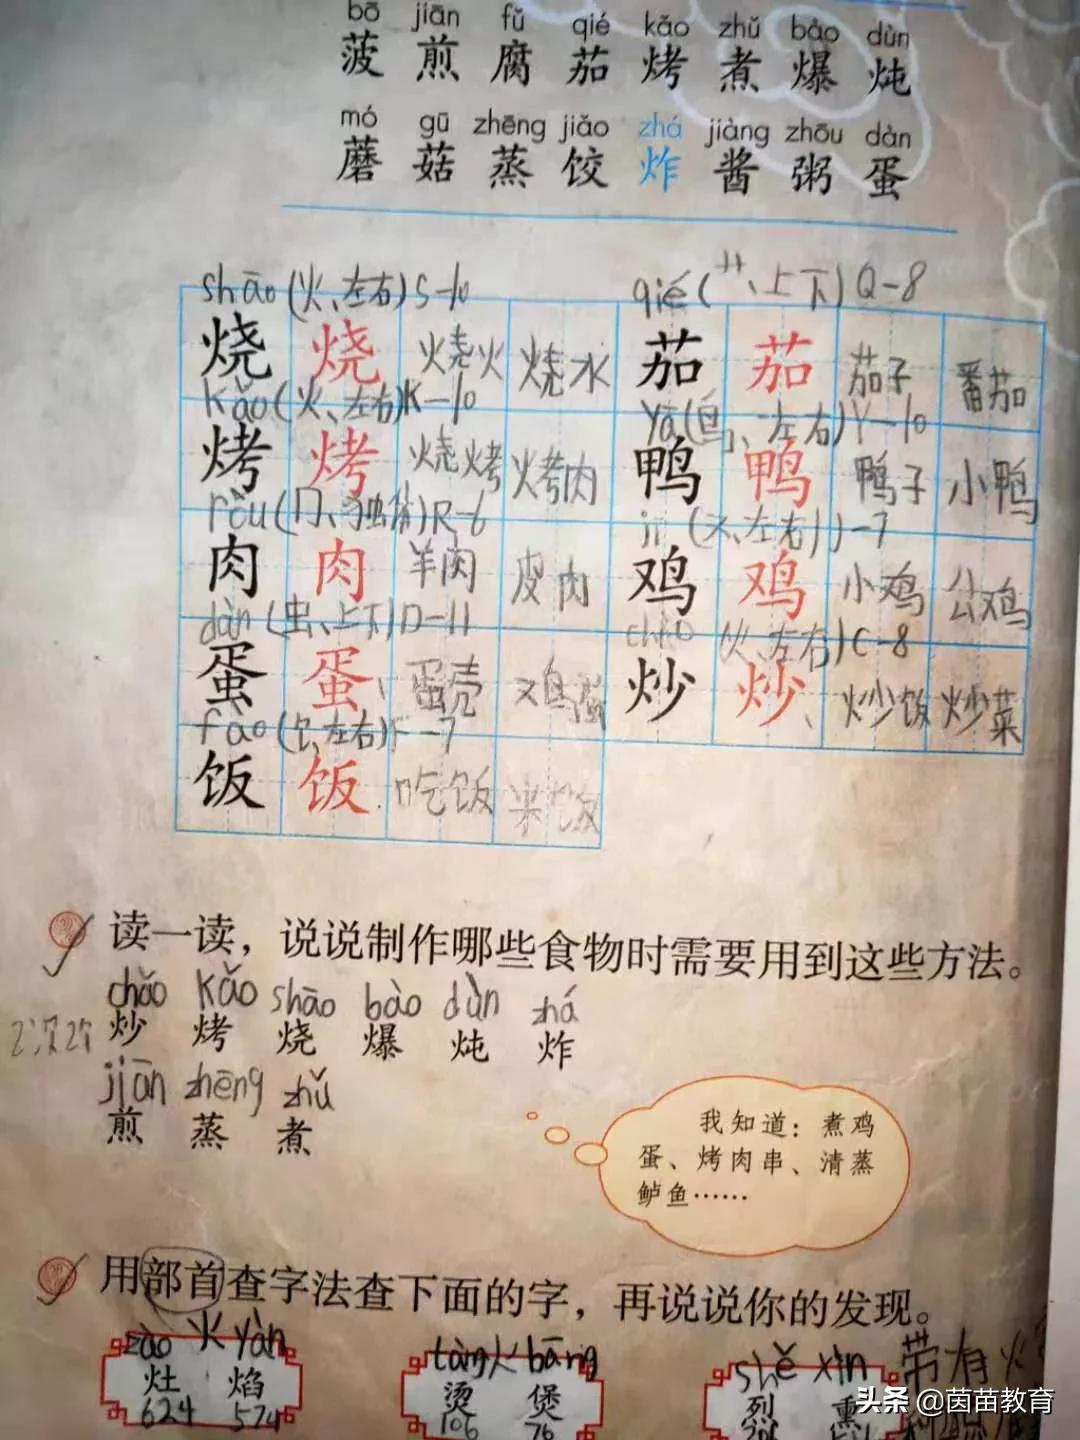 bō jiān fǔ qié kǎo zhǔ bào dùn
菠 煎 腐 茄 烤 煮 爆 炖
mó gū zhēng jiǎo zhá jiàng zhōu dàn
蘑 菇 蒸 饺 炸 酱 粥 蛋
shāo (火、左右) S-10
qié (艹、上下) Q-8
烧 烧 烧火 烧水 茄 茄 茄子 番茄
kǎo (火、左右) K-10
yā (鸟、左右) Y-10
烤 烤 烧烤 烤肉 鸭 鸭 鸭子 小鸭
ròu (冂、独体) R-6
jī (又、左右) J-7
肉 肉 羊肉 皮肉 鸡 鸡 小鸡 公鸡
dàn (虫、上下) D-11
(火、左右) C-8
蛋 蛋 蛋壳 鸡蛋 炒 炒 炒饭 炒菜
fào (饣、左右) F-7
饭 饭 吃饭 米饭
读一读，说说制作哪些食物时需要用到这些方法。
chǎo kǎo shāo bào dùn zhá
炒 烤 烧 爆 炖 炸
jiān zhēng zhǔ
煎 蒸 煮
我知道：煮鸡
蛋、烤肉串、清蒸
鲈鱼……
用部首查字法查下面的字，再说说你的发现。
zào 火 yàn tàng 火 bāng shě xìn 带有火
灶 焰 烫 煲 烈 熏
624 574 106 76
头条 @茵苗教育